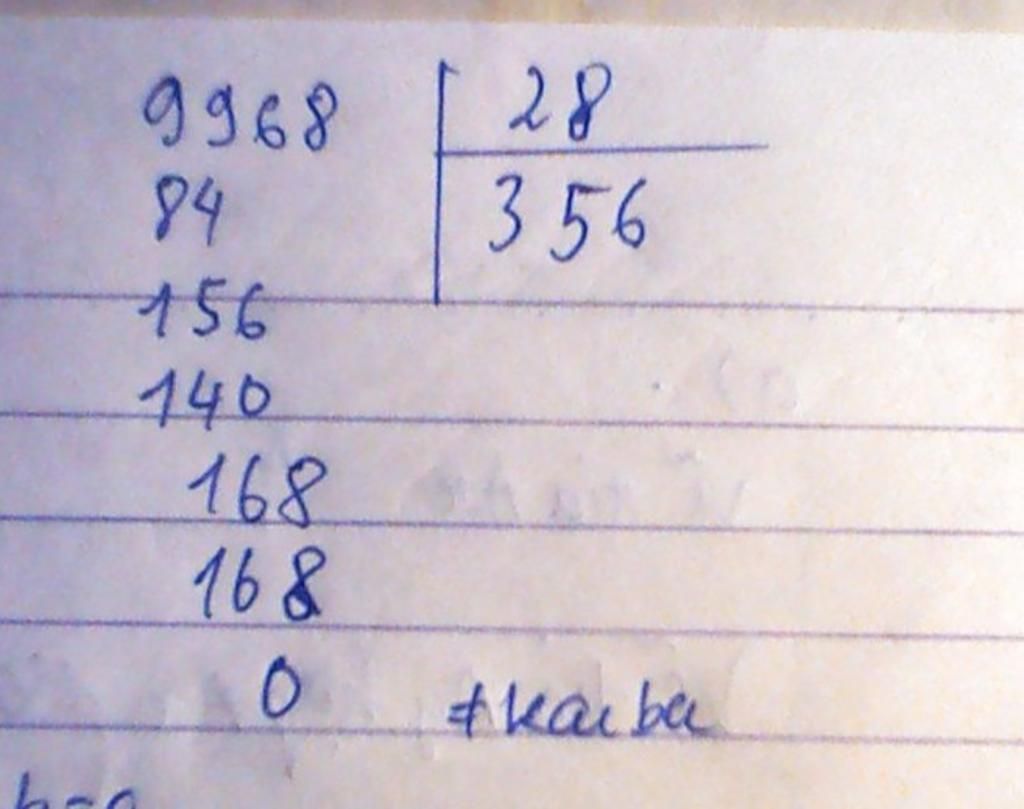 9968 28
84 356
156
140
168
168
0 #kaiba